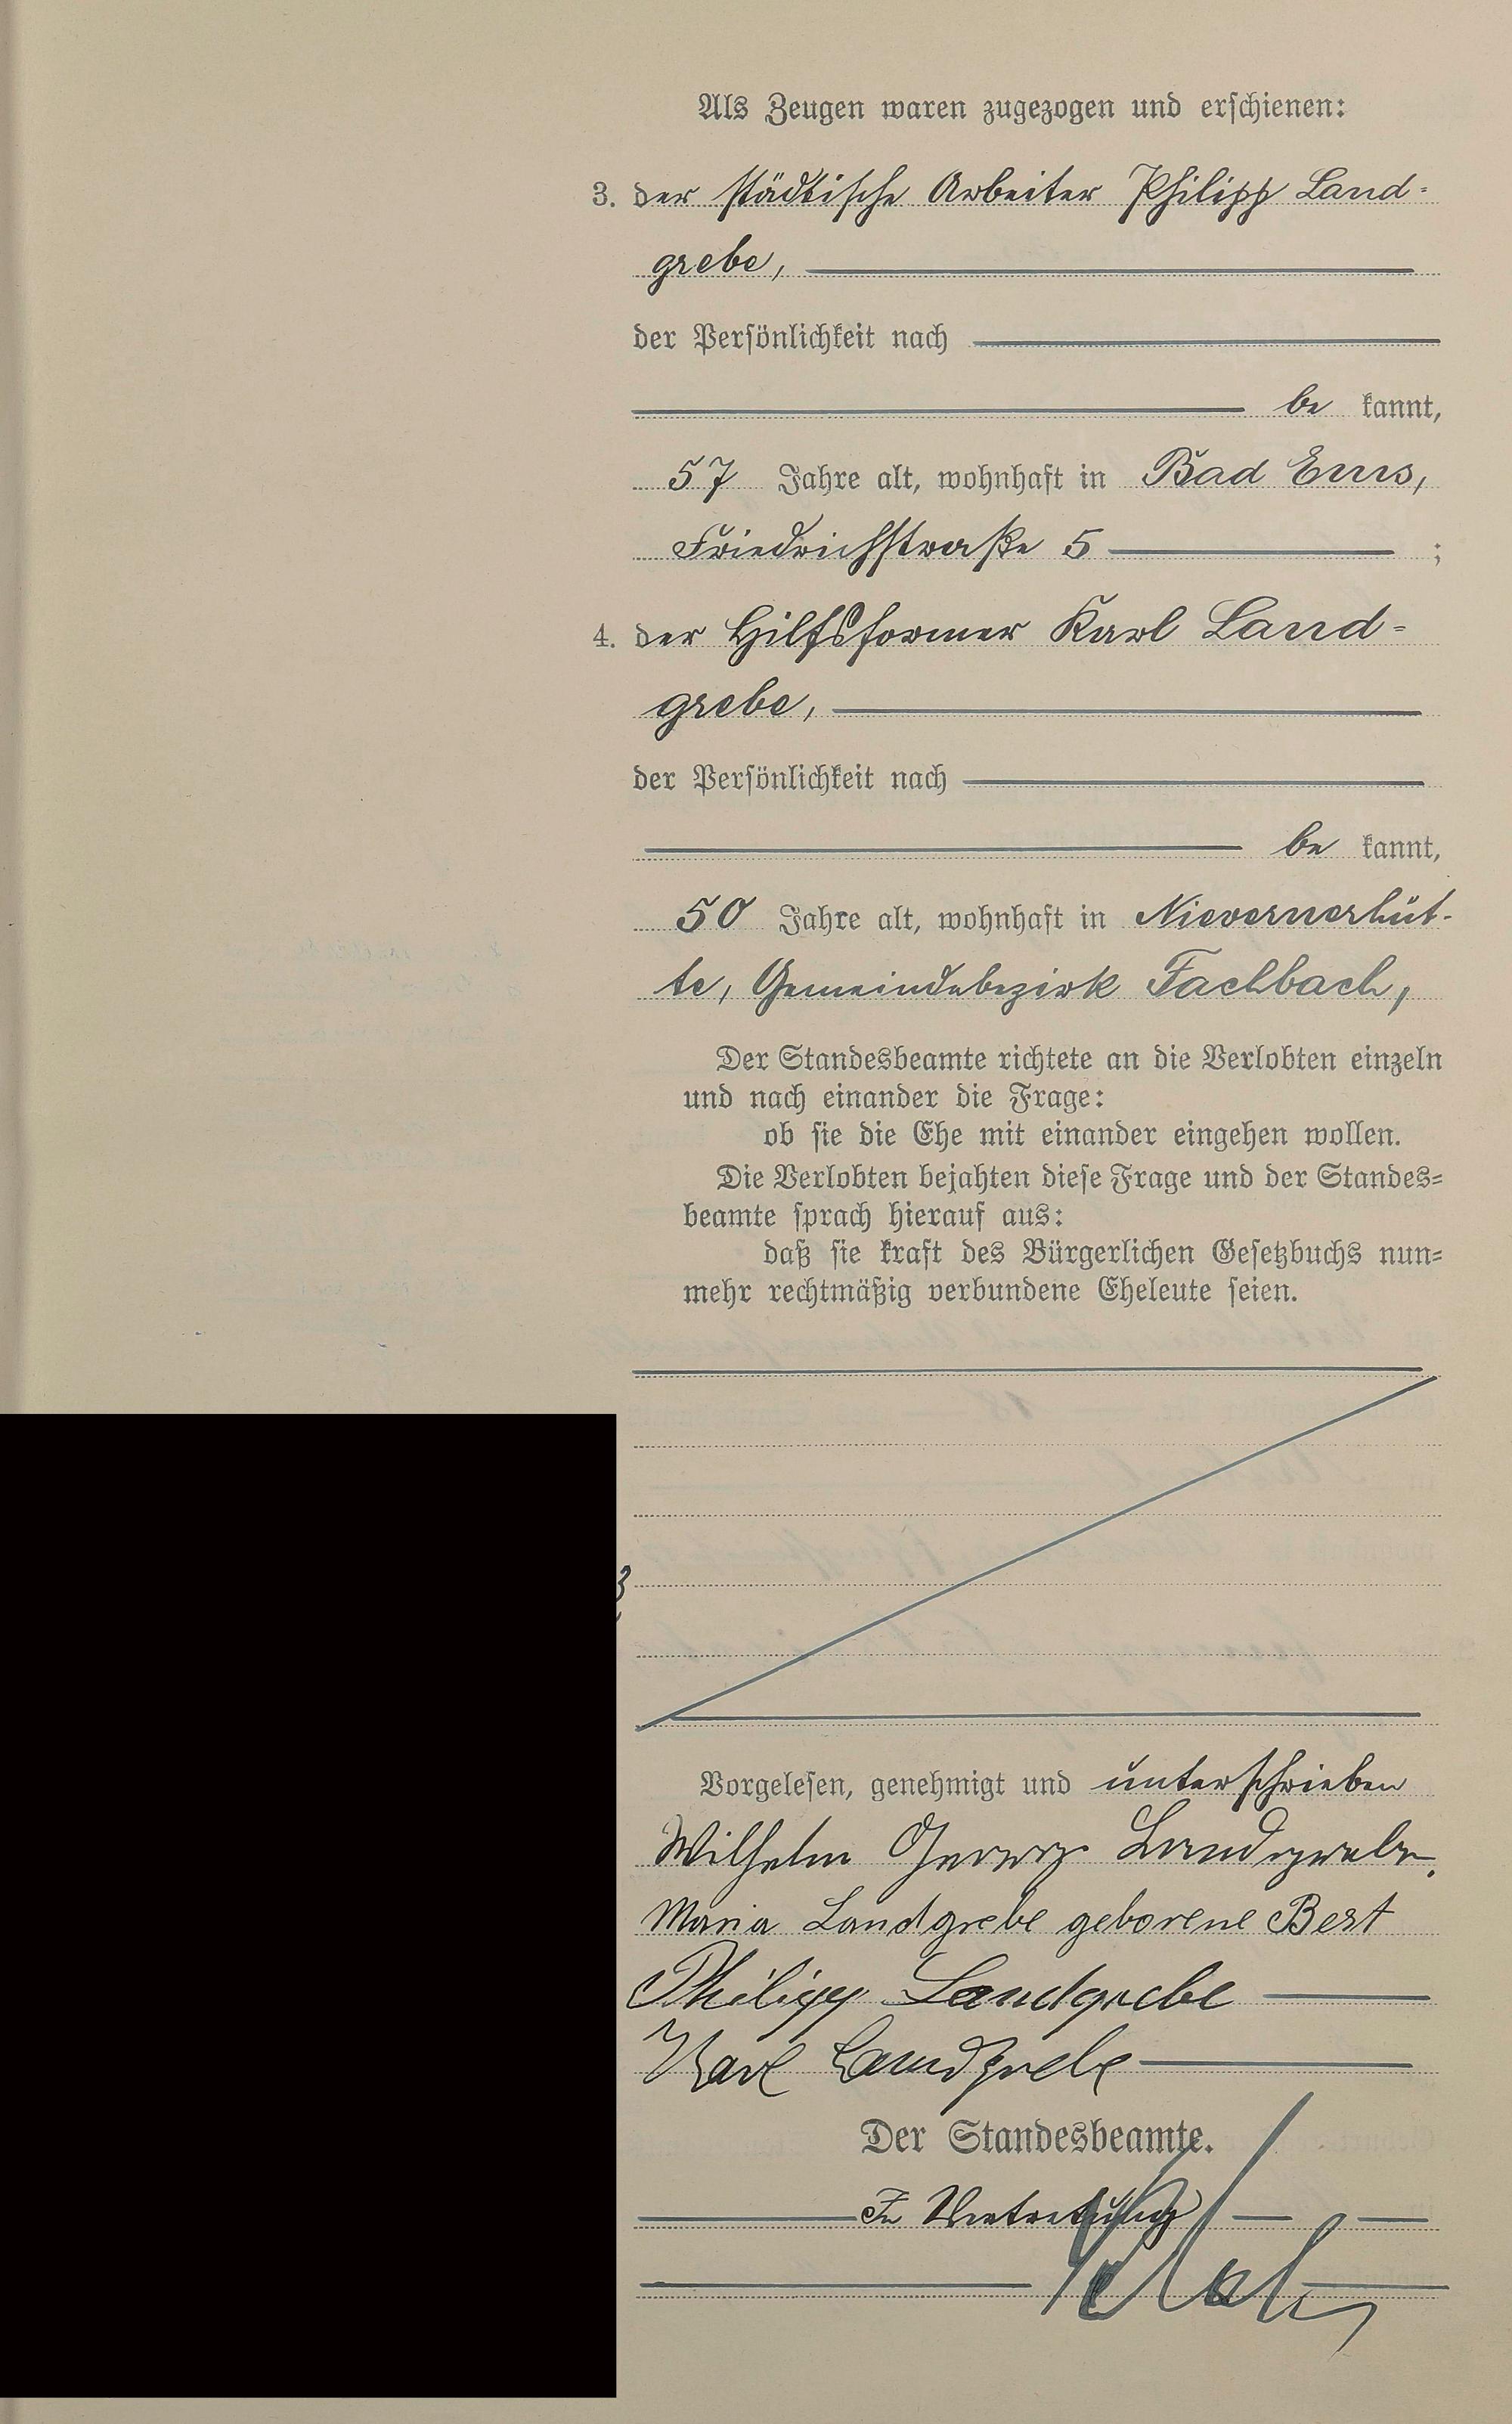 Als Zeugen waren zugezogen und erschienen:
3. der städtische Arbeiter Philipp Land-
grebe,
der Persönlichkeit nach
be kannt,
57 Jahre alt, wohnhaft in Bad Ems,
Friedrichstraße 5 ;
4. der Hilfsformer Karl Land-
grebe,
der Persönlichkeit nach
be kannt,
50 Jahre alt, wohnhaft in Nievernerhüt-
te, Gemeindebezirk Fachbach,
Der Standesbeamte richtete an die Verlobten einzeln
und nach einander die Frage:
ob sie die Ehe mit einander eingehen wollen.
Die Verlobten bejahten diese Frage und der Standes-
beamte sprach hierauf aus:
daß sie kraft des Bürgerlichen Gesetzbuchs nun-
mehr rechtmäßig verbundene Eheleute seien.
Vorgelesen, genehmigt und unterschrieben
Wilhelm Georg Landgrebe.
Maria Landgrebe geborene Best
Philipp Landgrebe
Karl Landgrebe
Der Standesbeamte.
In Vertretung